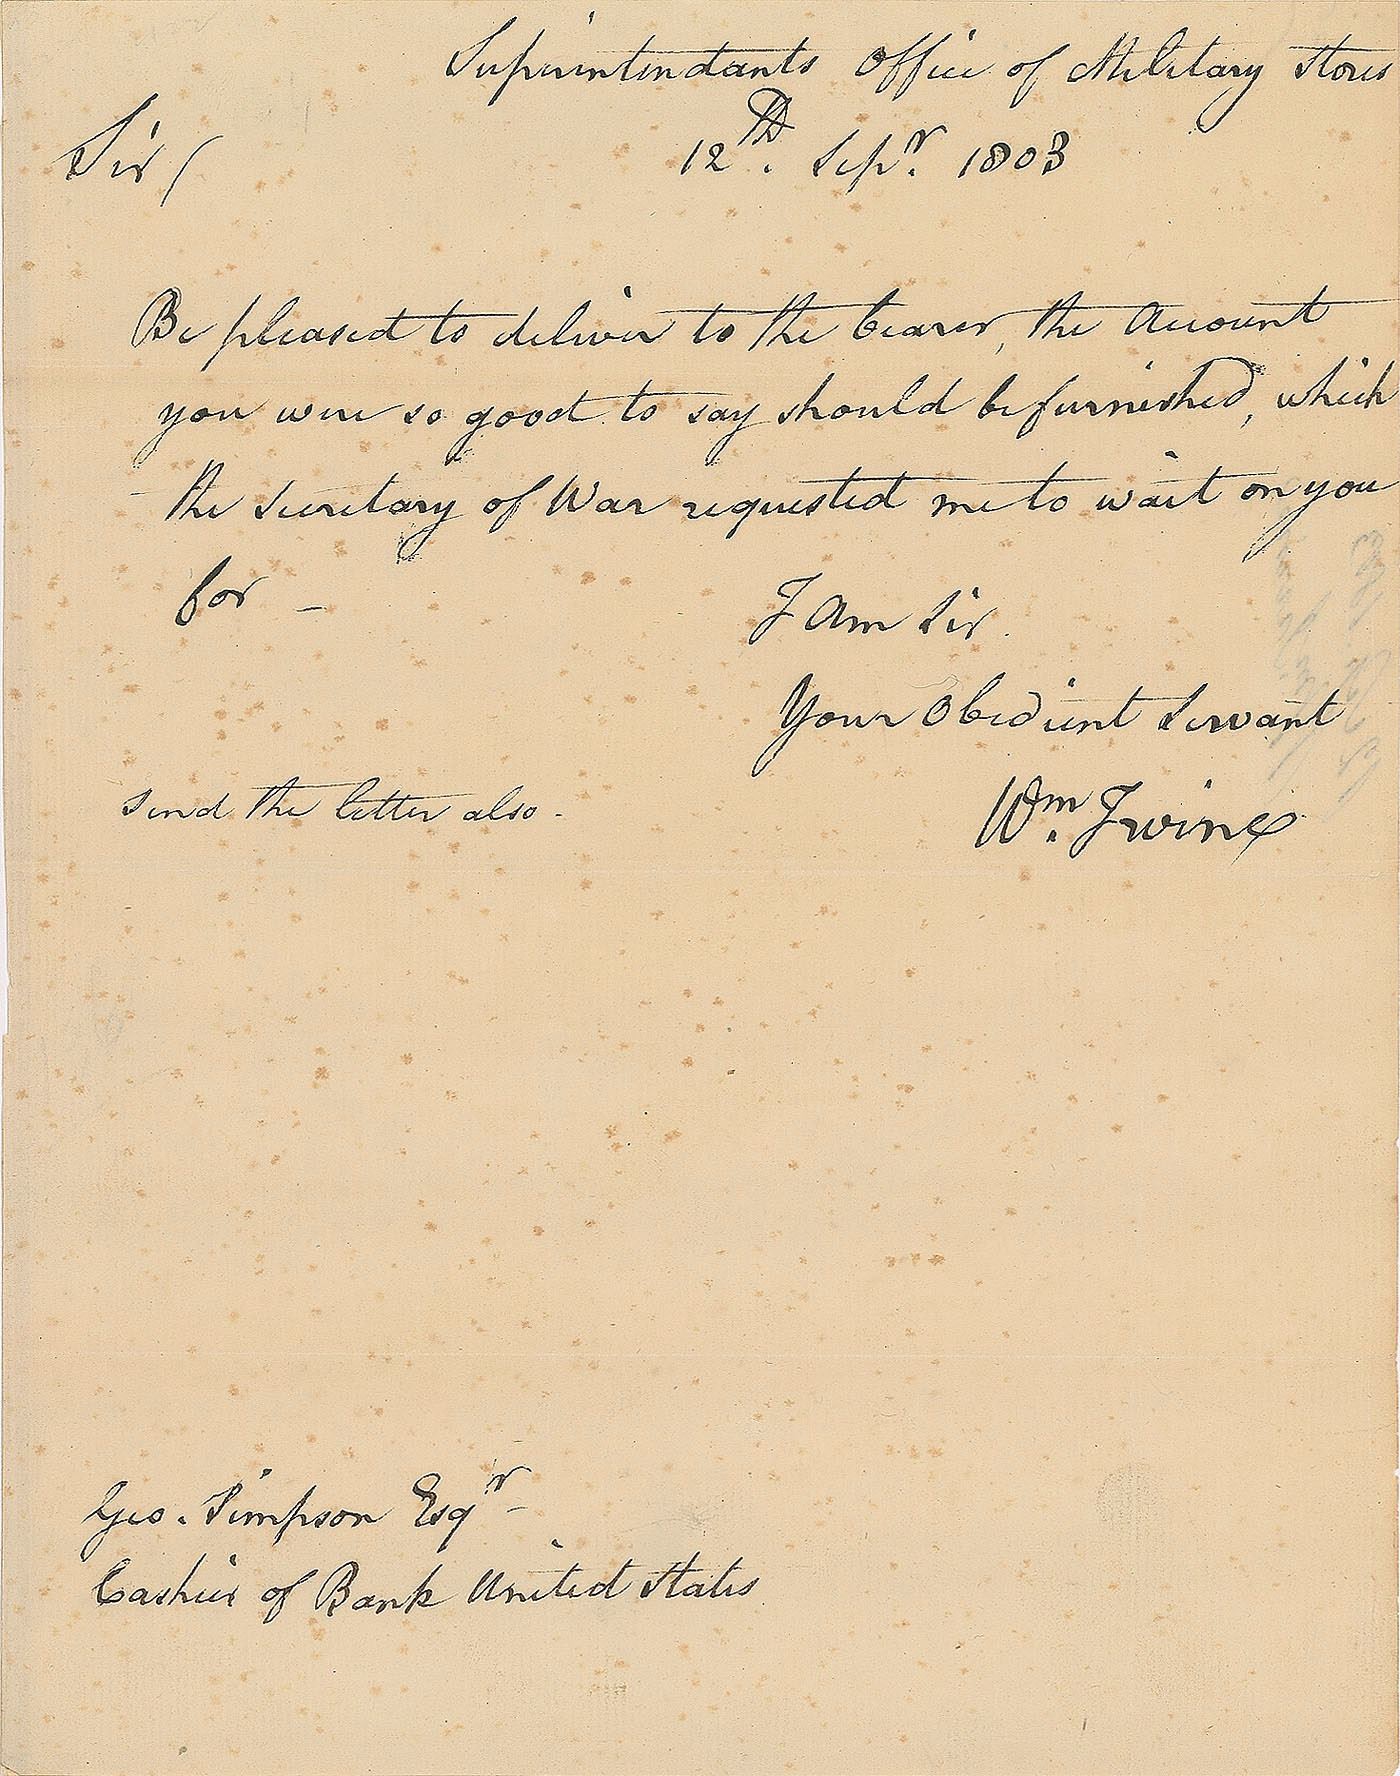 Superintendants Office of Military Stores
12th. Sepr. 1803
Sir/
Be pleased to deliver to the bearer, the Account
you were so good to say should be furnished, which
the Secretary of War requested me to wait on you
for –
I Am Sir.
Your Obedient Servant
Wm. Irvine
Send the letter also.
Geo. Simpson Esqr
Cashier of Bank United States